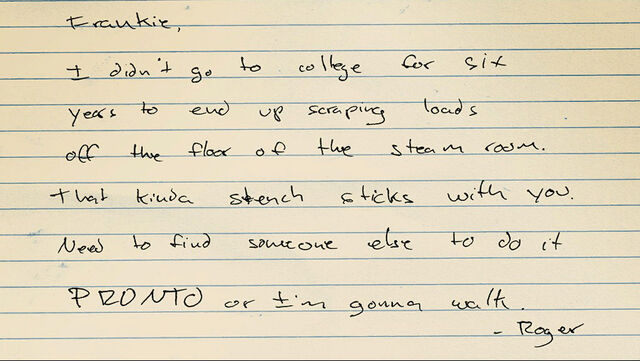 Frankie,
I didn't go to college for six
years to end up scraping loads
off the floor of the steam room.
That kinda stench sticks with you.
Need to find someone else to do it
PRONTO or I'm gonna walk.
- Roger